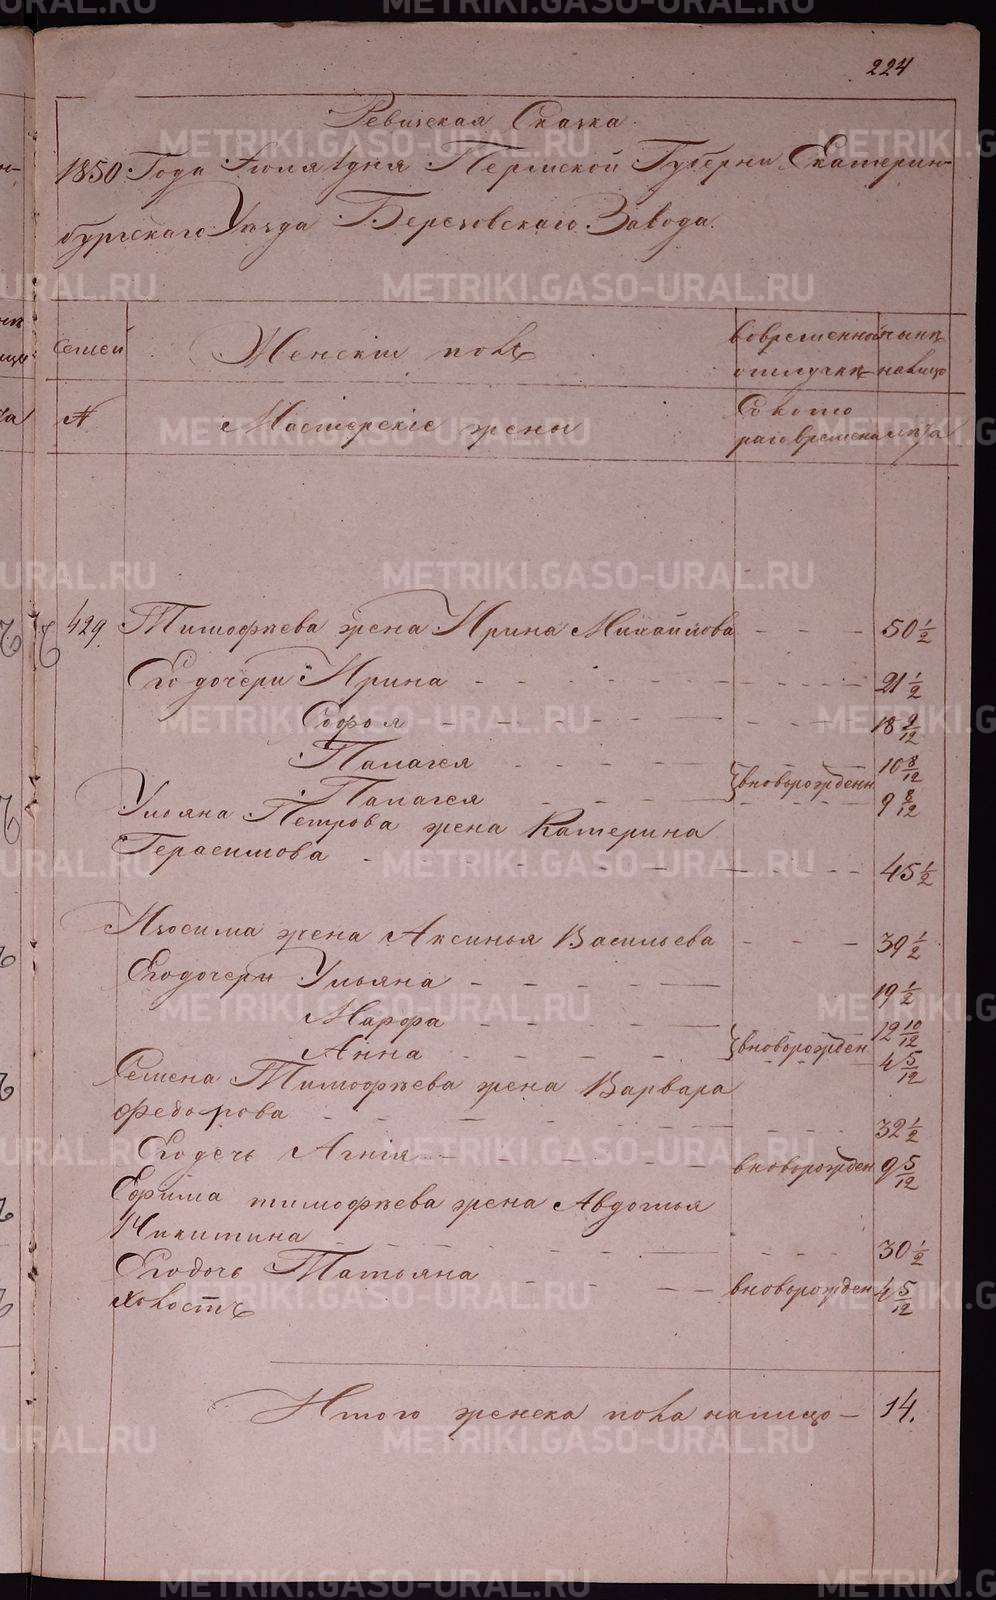 224
Ревизская Сказка
1850 Года Іюля 1 дня Пермской Губерни Екатерин-
бургскаго Уѣзда Березовскаго Завода.
семей
Женскій полъ
вовременной отлучкѣ
нынѣ налицо
№
Мастерскіе жены
Съ кото раго времени
лѣта
429 Тимофѣева жена Ирина Михайлова - - - 50 1/2
Его дочери Ирина - - - 21 1/2
Софья - - - 18 9/12
Палагея - - - 10 8/12
} вноворожден
Палагея - - - 9 8/12
Ульяна Петрова жена Катерина
Герасимова - - - 45 1/2
Изосима жена Аксинья Васильева - - - 39 1/2
Егодочери Ульяна - - - 19 1/2
Марфа - - - 12 10/12
} вноворожден
Анна - - - 4 5/12
Семена Тимофѣева жена Варвара
Федорова - - - 32 1/2
Егодечь Агнія - - - вноворожден 9 5/12
Ефима тимофѣева жена Авдотья
Никитина - - - 30 1/2
Егодочь Татьяна - - - вноворожден 4 5/12
холостъ
Итого женска пола налицо - 14.
METRIKI.GASO-URAL.RU